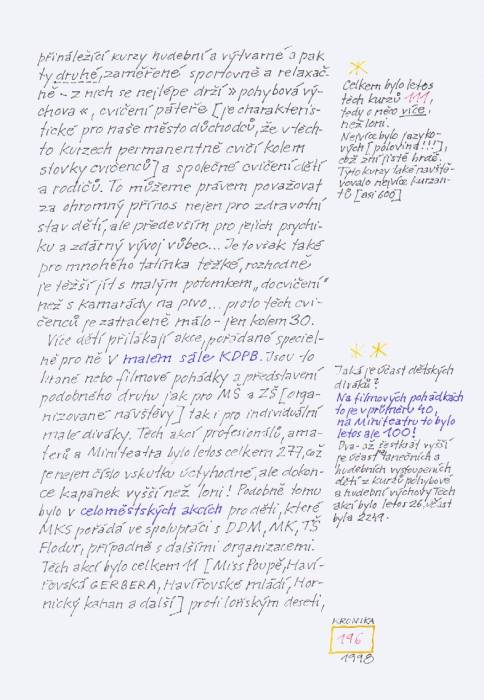 přináležící kurzy hudební a výtvarné a pak
ty druhé, zaměřené sportovně a relaxač-
ně - z nich se nejlépe drží » pohybová vý-
chova «, cvičení páteře [je charakteris-
tické pro naše město důchodců, že v těch-
to kurzech permanentně cvičí kolem
stovky cvičenců] a společné cvičení dětí
a rodičů. To můžeme právem považovat
za ohromný přínos nejen pro zdravotní
stav dětí, ale především pro jejich psychi-
ku a zdárný vývoj vůbec... Je to však také
pro mnohého tatínka těžké, rozhodně
je těžší jít s malým potomkem „do cvičení"
než s kamarády na pivo... proto těch cvi-
čenců je zatraceně málo - jen kolem 30.
Více dětí přilákají akce, pořádané speciel-
ně pro ně v malém sále KDPB. Jsou to
hrané nebo filmové pohádky a představení
podobného druhu jak pro MŠ a ZŠ [orga-
nizované návštěvy] tak i pro individuální
malé diváky. Těch akcí profesionálů, ama-
térů a Miniteatru bylo letos celkem 277, což
je nejen číslo vskutku úctyhodné, ale dokon-
ce kapánek vyšší než loni! Podobně tomu
bylo v celoměstských akcích pro děti, které
MKS pořádá ve spolupráci s DDM, MK, TŠ
Flodur, případně s dalšími organizacemi.
Těch akcí bylo celkem 11 [Miss Poupě, Haví-
řovská GERBERA, Havířovské mládí, Hor-
nický kahan a další] proti loňským deseti,
Celkem bylo letos
těch kurzů 111,
tedy o něco více,
než loni.
Nejvíce bylo jazyko-
vých [polovina!!!],
což zní jistě hrdě.
Tyto kurzy také navště-
vovalo nejvíce kurzan-
tů [asi 600]
Jaká je účast dětských
diváků?
Na filmových pohádkách
to je v průměru 40,
na Miniteatru to bylo
letos ale 100!
Dva- až šestkrát vyšší
je účast tanečních a
hudebních vystoupeních
dětí z kurzů pohybové
a hudební výchovy. Těch
akcí bylo letos 26, účast
byla 2249.
KRONIKA
196
1998